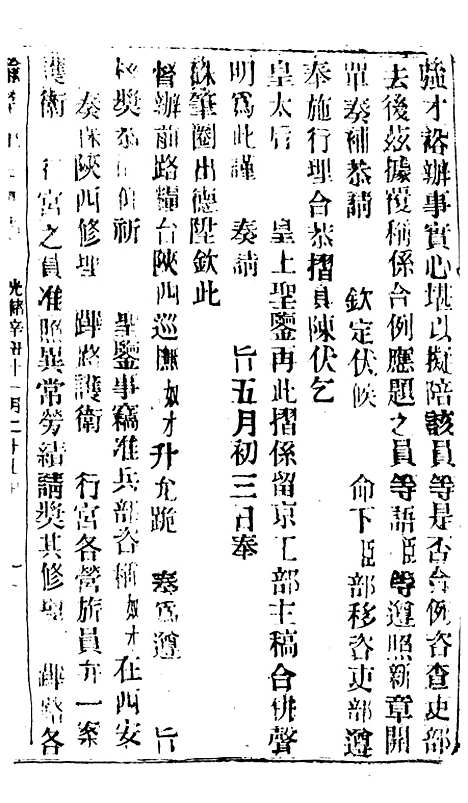 強才裕辦事實心堪以擬陪該員等是否合例咨查吏部
去後茲據覆稱係合例應題之員等語臣等遵照新章開
單奏補恭請 欽定伏候 命下臣部移咨吏部遵
奉施行理合恭摺具陳伏乞
皇太后 皇上聖鑒再此摺係留京工部主稿合併聲
明爲此謹 奏請 旨五月初三日奉
硃筆圈出德陞欽此
督辦前路糧台陝西巡撫奴才升允跪 奏爲遵 旨
獎恭 祈 聖鑒事竊准兵部咨稱奴才在西安
奏保陝西修墊 蹕路護衛 行宮各營旅員弁一案
護衛 行宮之員准照異常勞績請獎其修墊 蹕路各
光緒辛丑十一月二十